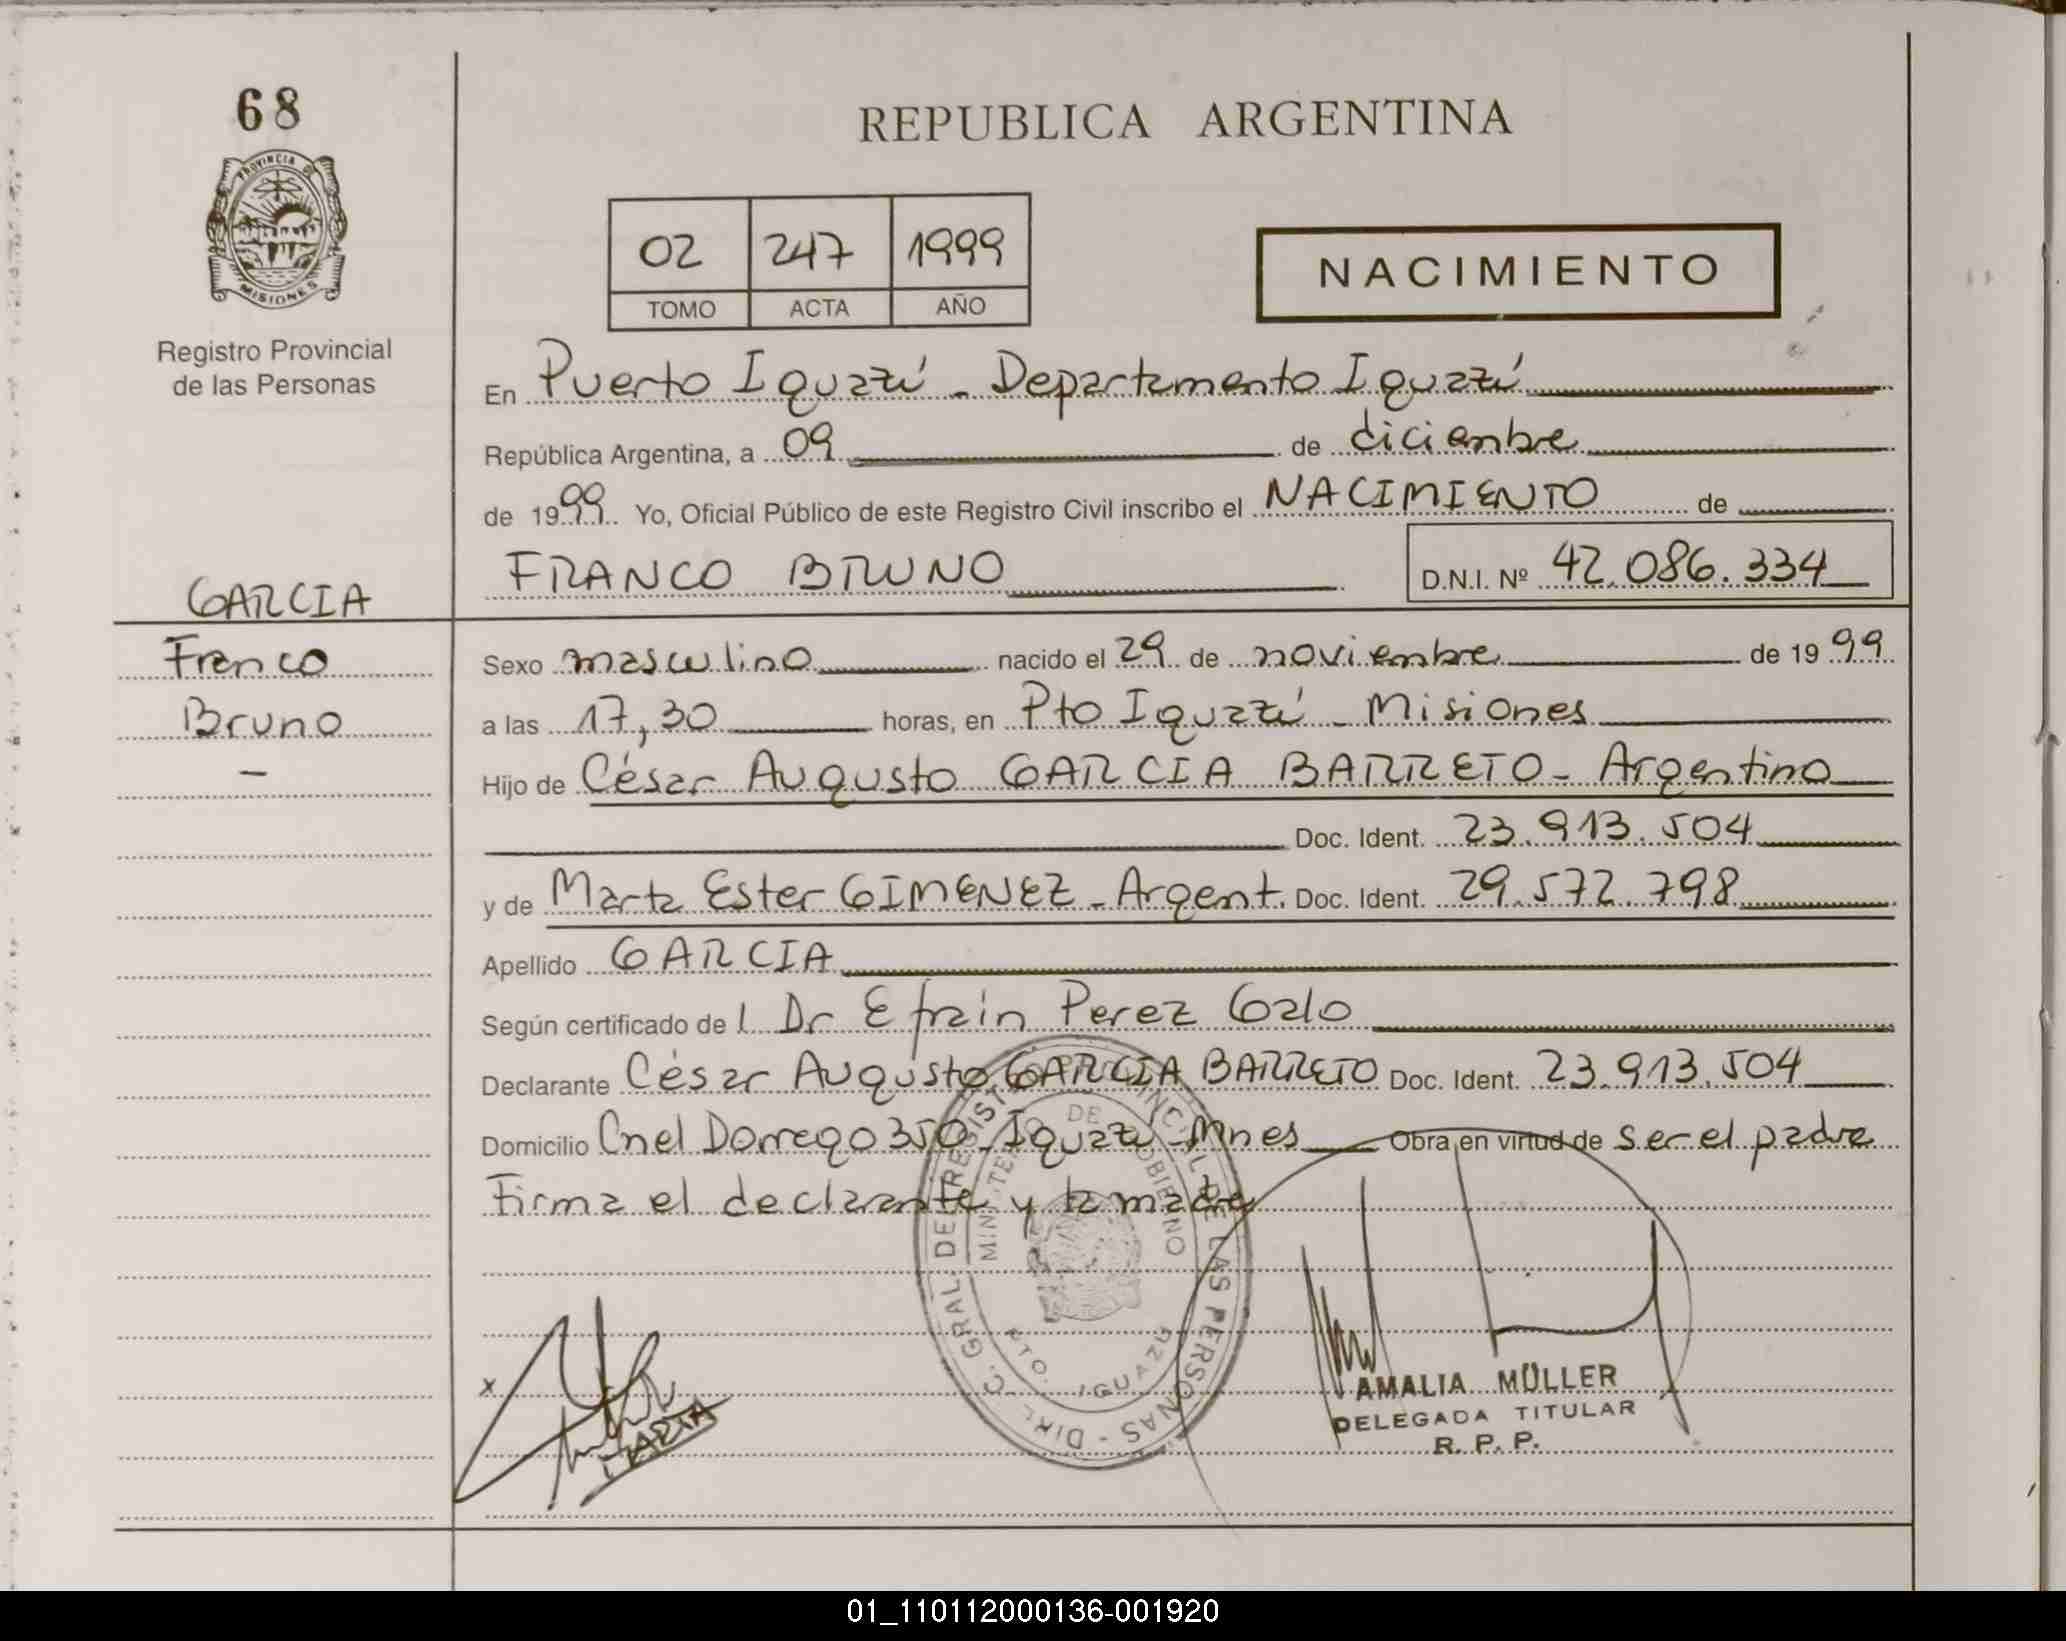 68
PROVINCIA DE
MISIONES
Registro Provincial
de las Personas
REPUBLICA ARGENTINA
02 247 1999
TOMO ACTA AÑO
NACIMIENTO
En Puerto Iguazú - Departamento Iguazú
República Argentina, a 09 de diciembre
de 1999 Yo, Oficial Público de este Registro Civil inscribo el NACIMIENTO de
FRANCO BRUNO D.N.I. Nº 42.086.334
GARCIA
Franco
Bruno
-
Sexo masculino nacido el 29 de noviembre de 1999
a las 17,30 horas, en Pto Iguazú - Misiones
Hijo de César Augusto GARCIA BARRETO - Argentino
Doc. Ident. 23.913.504
y de Marta Ester GIMENEZ - Argent. Doc. Ident. 29.572.798
Apellido GARCIA
Según certificado de l Dr Efraín Perez Galo
Declarante César Augusto GARCIA BARRETO Doc. Ident. 23.913.504
Domicilio Cnel Dorrego 350 - Iguazú - Mnes Obra en virtud de ser el padre
Firma el declarante y la madre
DIR. GRAL. DE REGISTRO PROVINCIAL DE LAS PERSONAS
MINISTERIO DE GOBIERNO
PTO. IGUAZU
x
GARCIA
AMALIA MÜLLER
DELEGADA TITULAR
R. P. P.
01_110112000136-001920